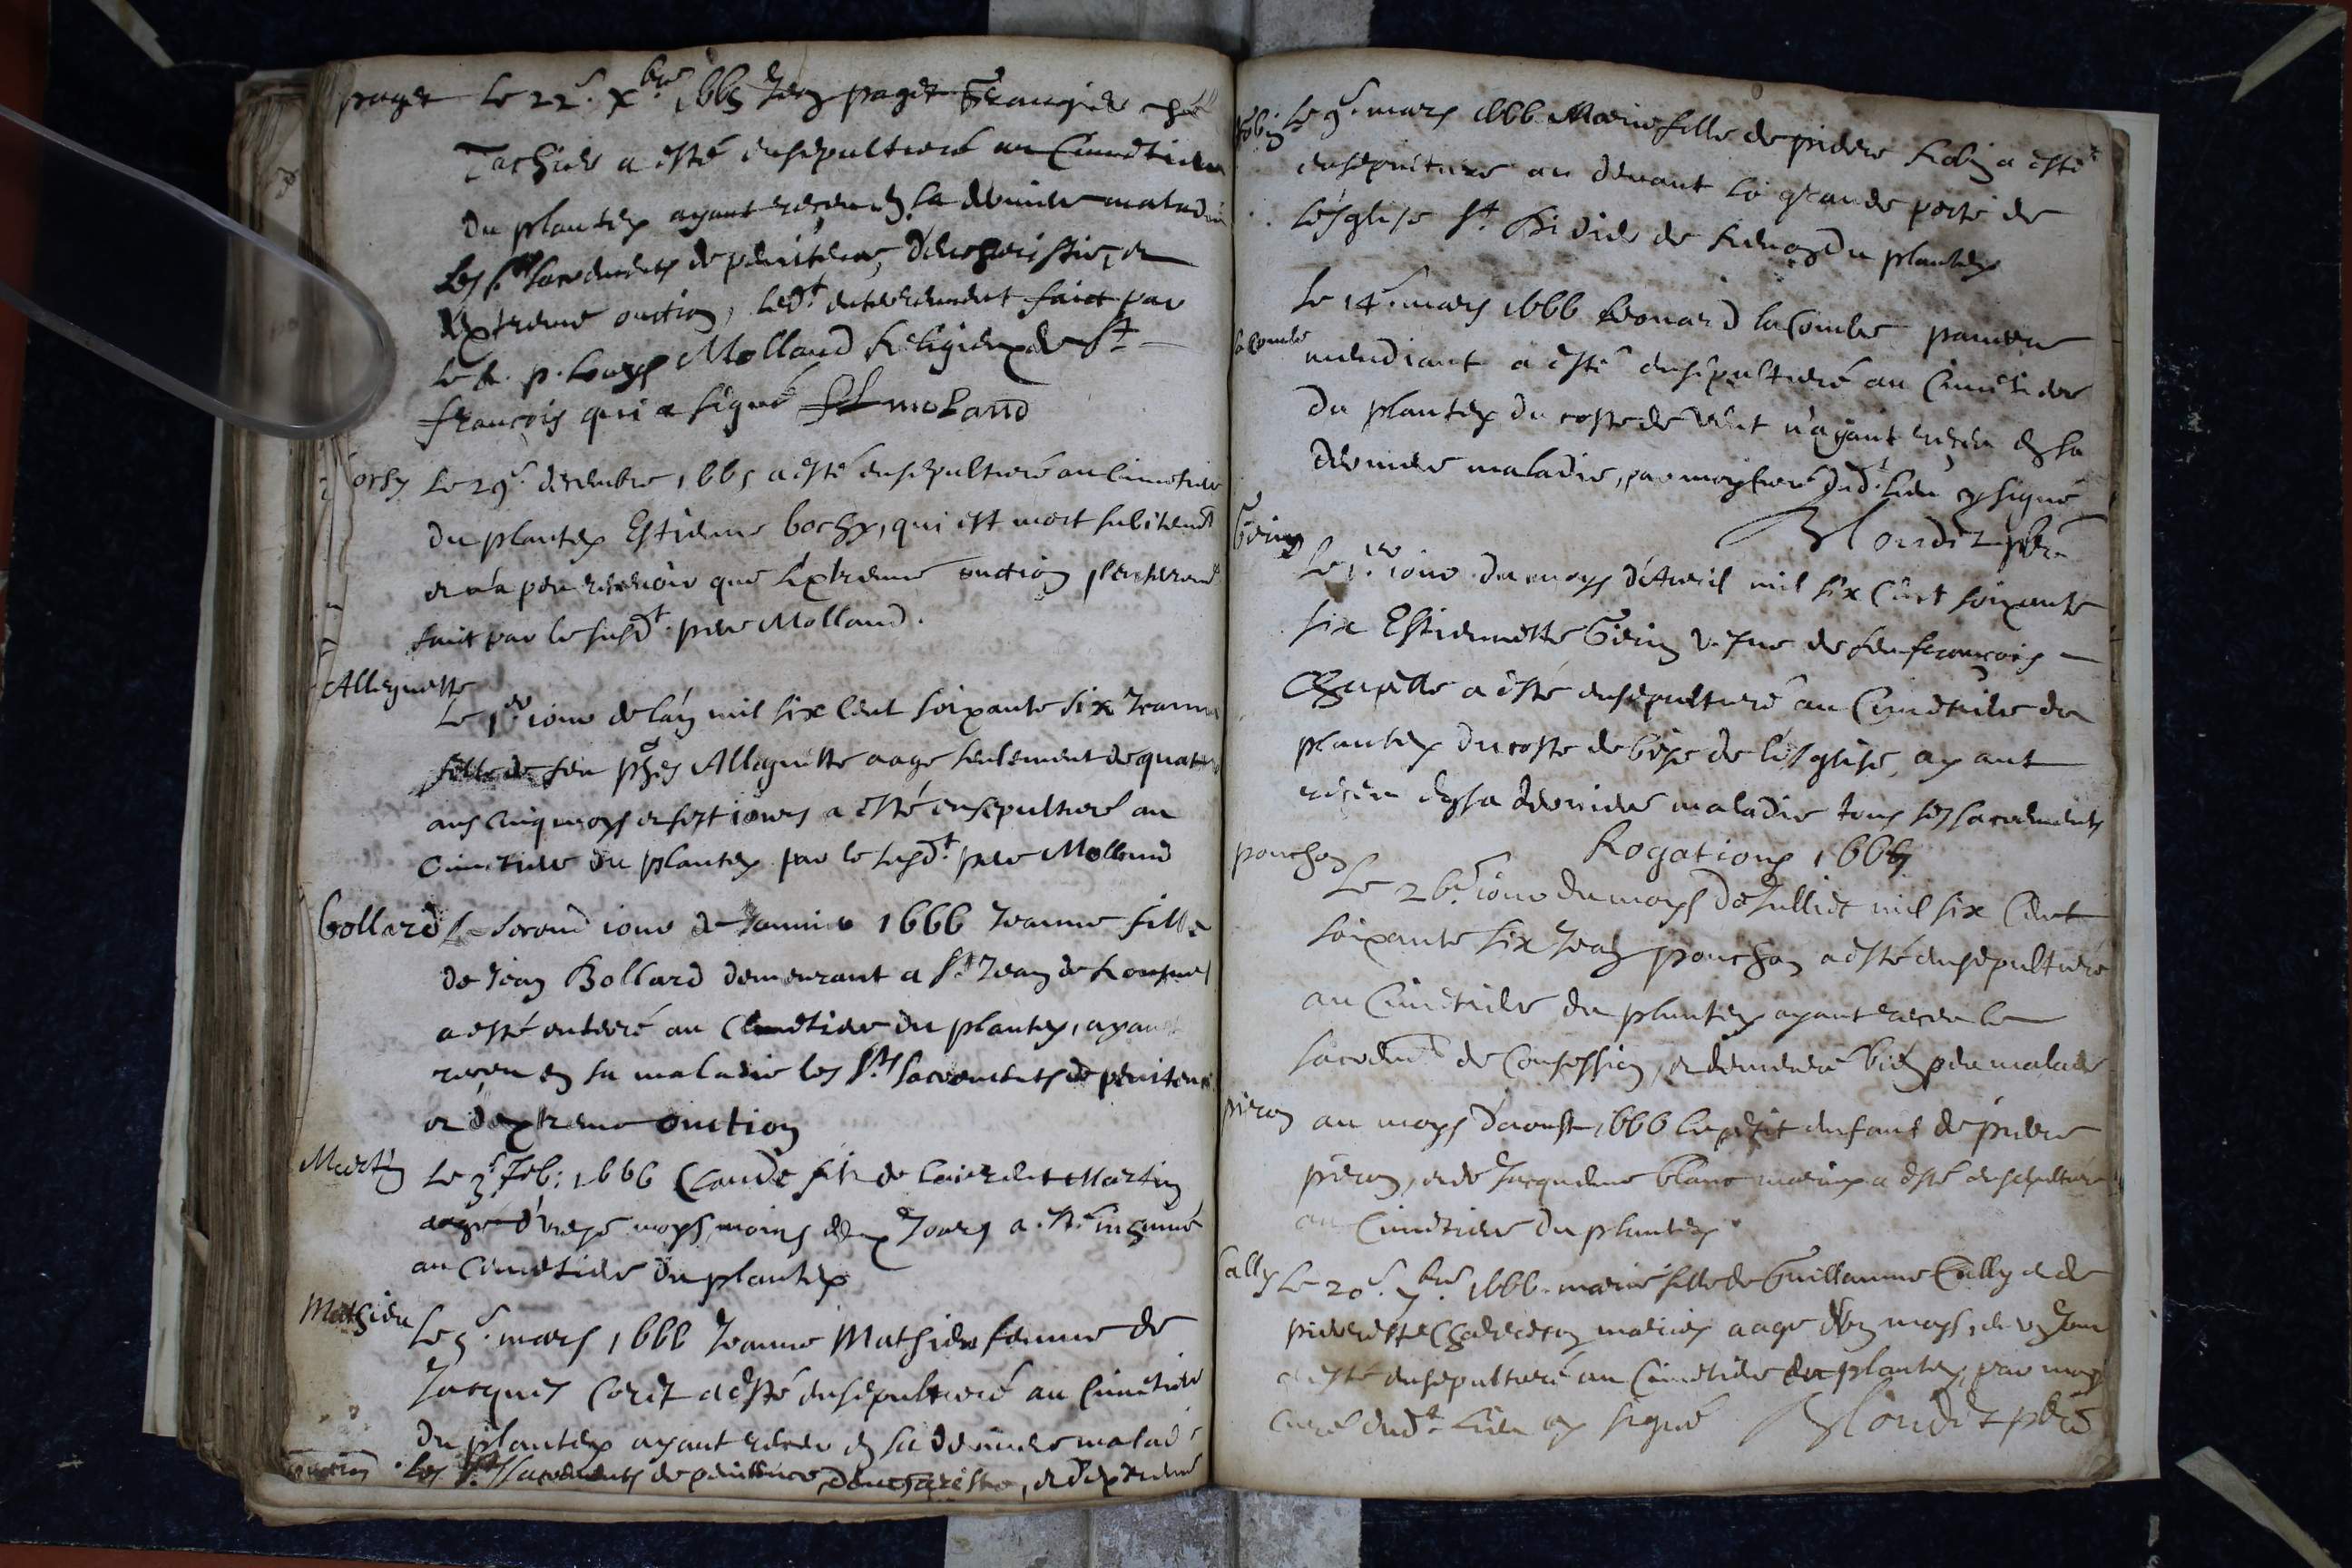 paget Le 22e. xbre 1665 Jean paget Grangier chez
Tachier a esté ensepulturé au Cimetiere
du plantey ayant receu en sa derniere maladie
les sts sacrements de penitence, d'eucharistie, et
d'extreme onction, led.t enterrement faict par
le R. p. Louys Molland Religieux de St
françois qui a signé fL moland
Le 29e. decembre 1665 a esté ensepulturé au Cimetiere
du plantey Estienne borsy, qui est mort subitemt
et n'a peu recevoir que l'extreme onction, l'enterremt
faict par le susd.t pere Molland.
Alleguette
Le 1er iour de l'an mil six cent soixante six Jeanne
fille de feu Alleguette aage seulement de quatre
ans cinq moys et sept iours a esté ensepulturé au
Cimetiere du plantey par le susd.t pere Molland
bollard Le second iour de Janvier 1666 Jeanne fille
de Jean Bollard demeurant a St Jean de
a esté enterré au Cimetiere du plantey, ayant
receu en sa maladie les Sts sacrements de penitence
et d'extreme onction
Martin Le 3e. feb: 1666 Claude fils de Laurent Martin
aagé d'onze moys moins deux Jours a esté inhumé
au Cimetiere du plantey
Mathieu Le 3e. mars 1666 Jeanne Mathieu femme de
Jacques Coret a esté ensepulturé au Cimetiere
du plantey ayant receu en sa derniere malad
onction les Sts sacrements de penitence, d'eucharistie, et d'extreme
Robin Le 9e. mars 1666 Marie fille de pierre Robin a esté
ensepulturé au devant la grande porte de
l'esglise St. Didier de Renoz du plantey
Le 14e. mars 1666 Leonard la Combe pauvre
la Combe mendiant a esté ensepulturé au Cimetiere
du plantey du costé de vent n'ayant receu en sa
derniere maladie, par moy Curé dud.t lieu ay signé
Blondet pbre
Gerin
Le 1er iour du moys d'Avril mil six Cent soixante
six Estiennette Gerin vefve de feu françois
Chapelle a esté ensepulturé au Cimetiere du
plantey du costé de bise de l'esglise, ayant
receu en sa derniere maladie tous les sacrements
Rogations 1666
ponchon Le 26e. iour du moys de Julliet mil six Cent
soixante six Jean ponchon a esté ensepulturé
au Cimetiere du plantey ayant receu le
sacremt de Confession, et demeuré bien peu malade
pieron au moys d'aoust 1666 un petit enfant de pierre
pieron, et de Jacqueline blanc mariez a esté ensepulturé
au Cimetiere du plantey
Cally Le 20e. 7bre 1666. marie fille de Guillaume Cally et de
pierrette mariez aage d'un moys, et un Jour
a esté ensepulturé au Cimetiere du plantey, par moy
Curé dud.t lieu ay signé Blondet pbre